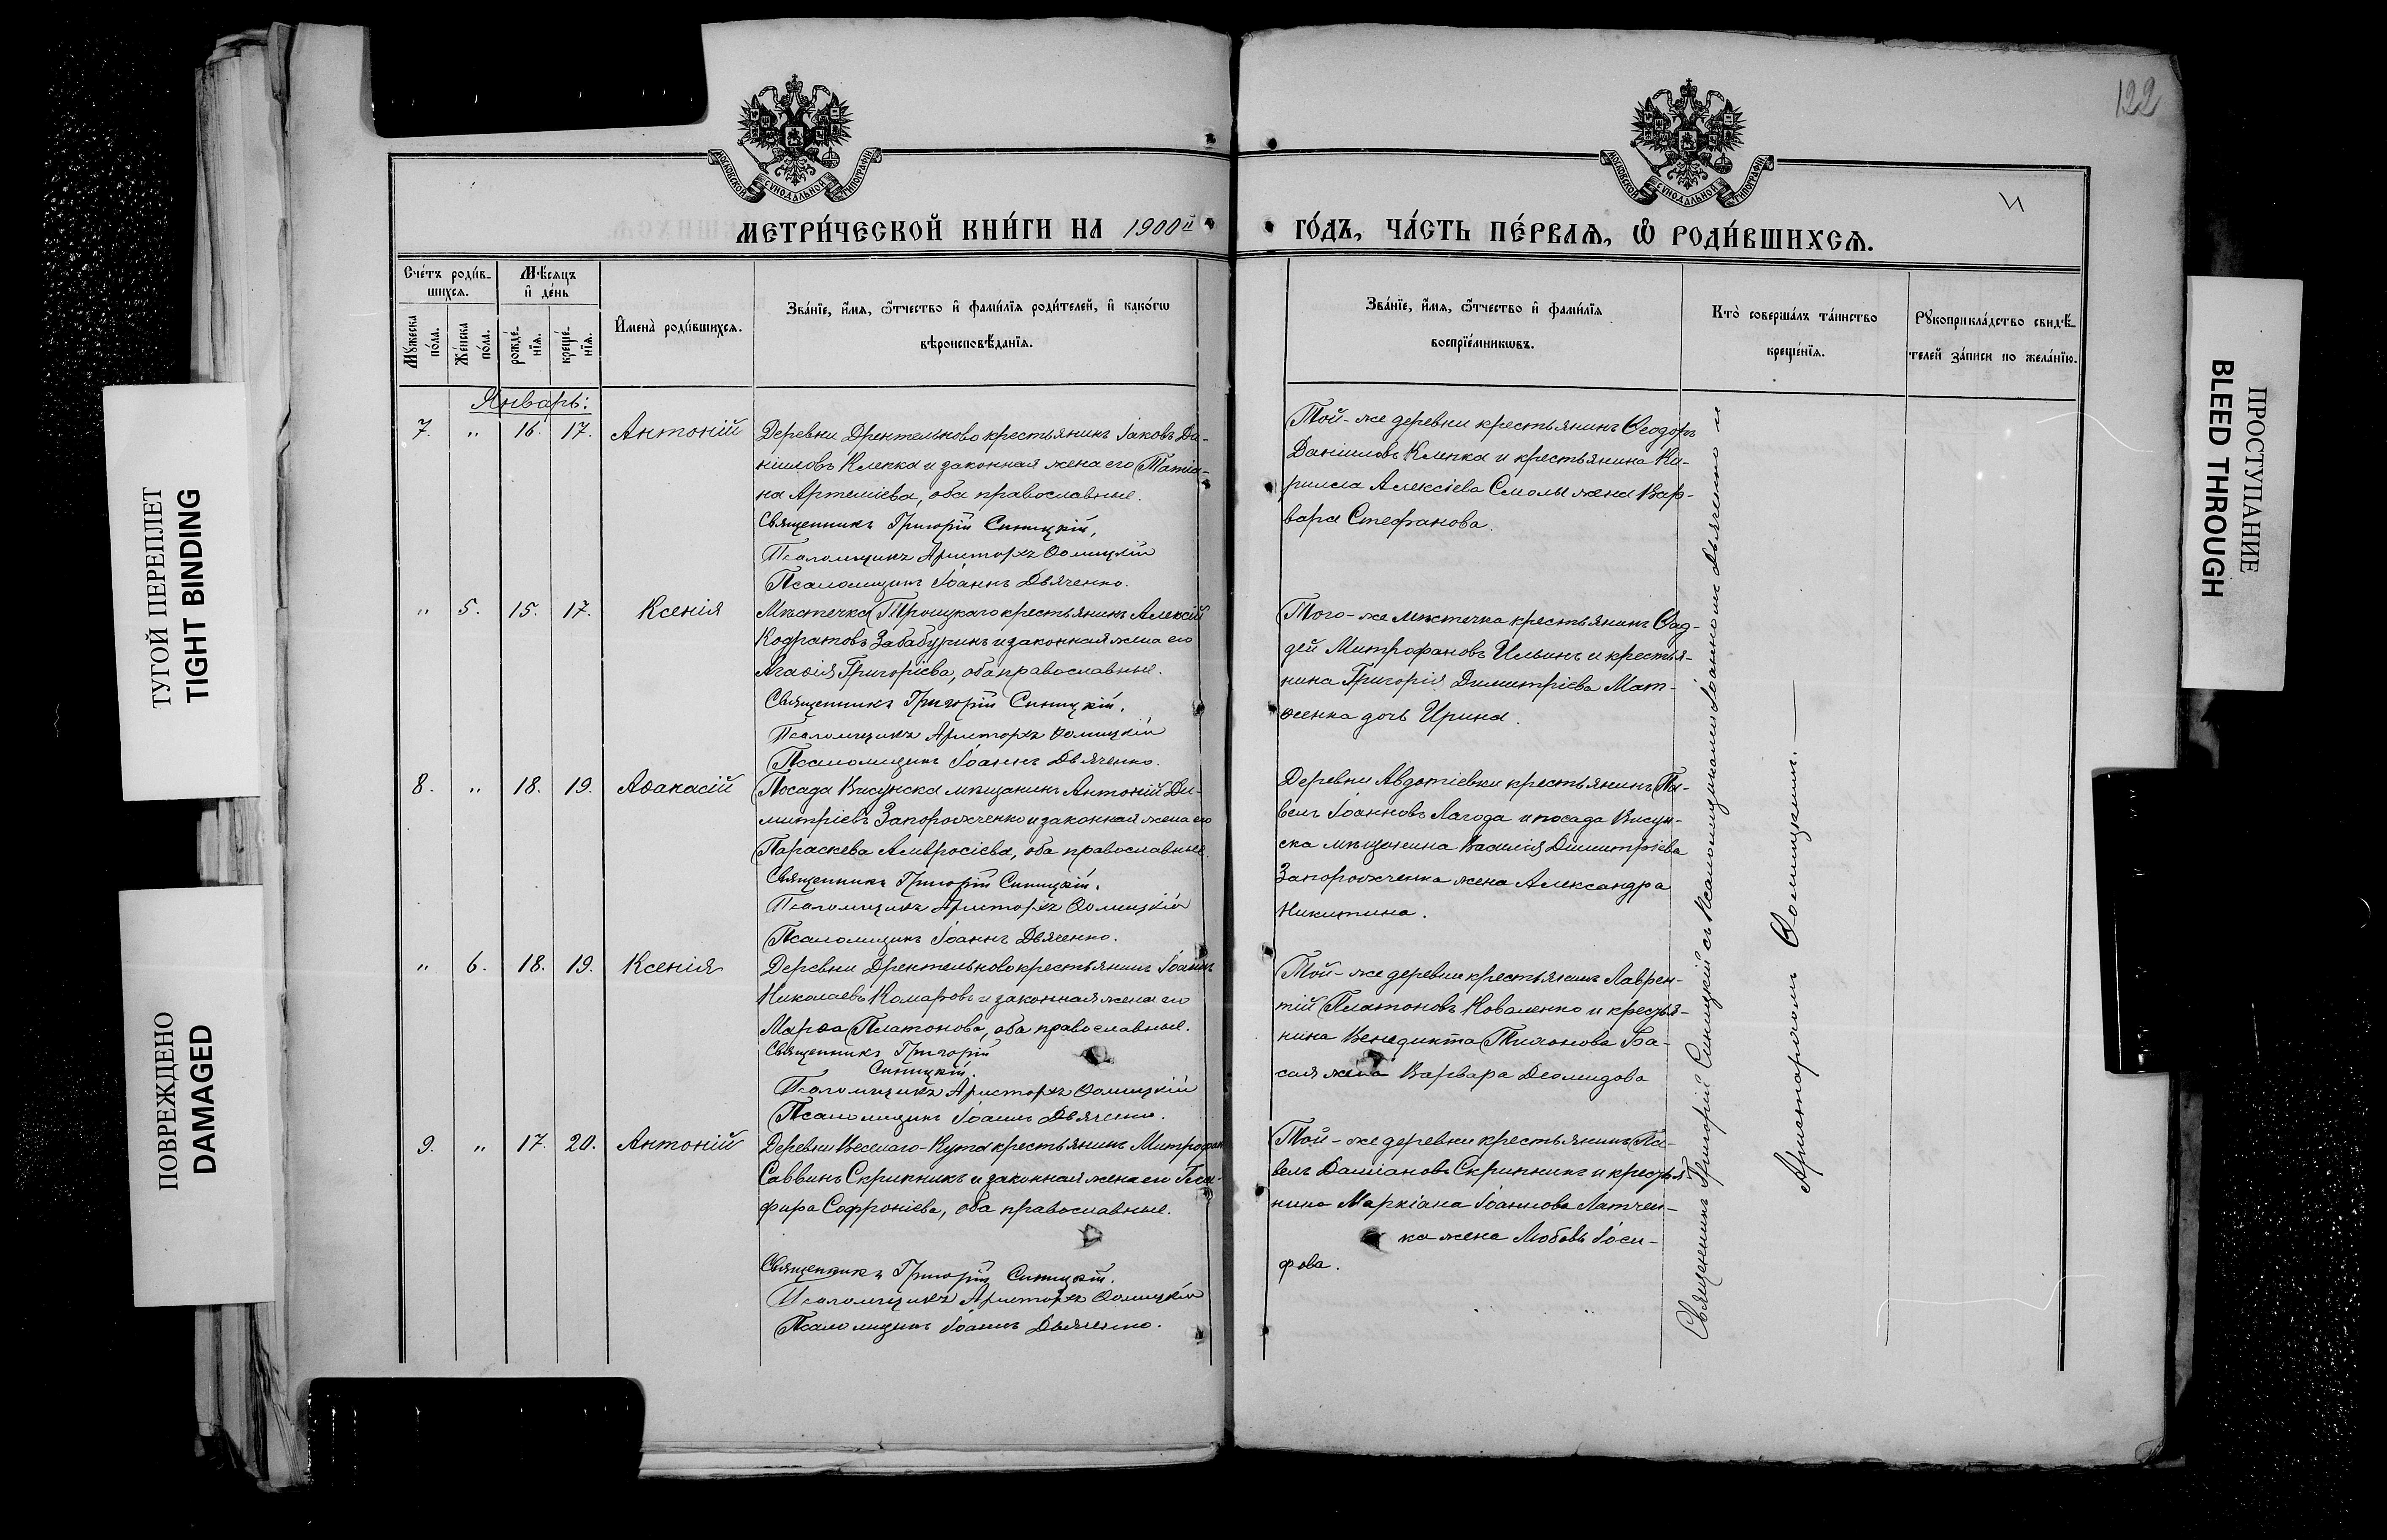 122
МОСКОВСКОЙ СУНОДАЛЬНОЙ ТИПОГРАФІИ
МОСКОВСКОЙ СУНОДАЛЬНОЙ ТИПОГРАФІИ
МЕТРИ́ЧЕСКОЙ КНИ́ГИ НА 1900й
ГО́ДЪ, ЧА́СТЬ ПЕ́РВАѦ, Ѡ҆ РОДИ́ВШИХСѦ.
Сче́тъ роди́в-
шихсѧ.
Мѣ́сѧцъ
и҆ де́нь
Мꙋ́жеска
по́ла.
Же́нска
по́ла.
рожде́-
нїѧ.
креще́-
нїѧ.
И҆мена̀ роди́вшихсѧ.
Зва́нїе, и҆́мѧ, ѻ҆́тчество и҆ фами́лїѧ роди́телей, и҆ како́гѡ
вѣроисповѣ́данїѧ.
Зва́нїе, и҆́мѧ, ѻ҆́тчество и҆ фами́лїѧ
воспрїе́мникѡвъ.
Кто̀ соверша́лъ та́инство
креще́нїѧ.
Рꙋкоприкла́дство свидѣ́-
телей за́писи по жела́нїю.
Январь:
7. " 16. 17. Антоній
Деревни Дрентельново крестьянинъ Іаковъ Да-
ніиловъ Клепка и законная жена его Татіа-
на Артеміева, оба православные.
Священникъ Григорій Синицкій,
Псаломщикъ Аристархъ Ѳомицкій
Псаломщикъ Іоаннъ Дьяченко.
Той-же деревни крестьянинъ Ѳеодоръ
Даніиловъ Клепка и крестьянина Ки-
рилла Алексіева Смолы жена Вар-
вара Стефанова.
" 5. 15. 17. Ксенія
Мѣстечка Троицкаго крестьянинъ Алексій
Кодратовъ Забабуринъ и законная жена его
Агаѳія Григоріева, оба православные.
Священникъ Григорій Синицкій.
Псаломщикъ Аристархъ Ѳомицкій
Псаломщикъ Іоаннъ Дьяченко.
Того-же мѣстечка крестьянинъ Ѳад-
дей Митрофановъ Ильинъ и крестья-
нина Григорія Димитріева Мат-
ѳенка дочь Ирина.
8. " 18. 19. Аѳанасій
Посада Висунска мѣщанинъ Антоній Ди-
митріевъ Запорожченко и законная жена его
Параскева Амвросіева, оба православные.
Священникъ Григорій Синицкій.
Псаломщикъ Аристархъ Ѳомицкій
Псаломщикъ Іоаннъ Дьяченко.
Деревни Авдотіевки крестьянинъ Па-
велъ Іоанновъ Лагода и посада Висун-
ска мѣщанина Василія Димитріева
Запорожченка жена Александра
Никитина.
" 6. 18. 19. Ксенія
Деревни Дрентельново крестьянинъ Іоаннъ
Николаевъ Комаровъ и законная жена его
Марѳа Платонова, оба православные.
Священникъ Григорій
Синицкій.
Псаломщикъ Аристархъ Ѳомицкій
Псаломщикъ Іоаннъ Дьяченко.
Той-же деревни крестьянинъ Лаврен-
тій Платоновъ Коваленко и крестья-
нина Венедикта Тихонова Ба-
сая жена Варвара Деомидова
9. " 17. 20. Антоній
Деревни Веселаго-Кута крестьянинъ Митрофанъ
Саввинъ Скрипникъ и законная жена его Гла-
фира Софроніева, оба православные.
Священникъ Григорій Синицкій.
Псаломщикъ Аристархъ Ѳомицкій
Псаломщикъ Іоаннъ Дьяченко.
Той-же деревни крестьянинъ Па-
велъ Даміановъ Скрипникъ и крестья-
нина Маркіана Іоаннова Латчен-
ка жена Любовь Іоси-
фова.
Священникъ Григорій Синицкій съ псаломщиками Іоанномъ Дьяченко и
Аристархомъ Ѳомицкимъ.
ТУГОЙ ПЕРЕПЛЕТ
TIGHT BINDING
ПОВРЕЖДЕНО
DAMAGED
ПРОСТУПАНИЕ
BLEED THROUGH